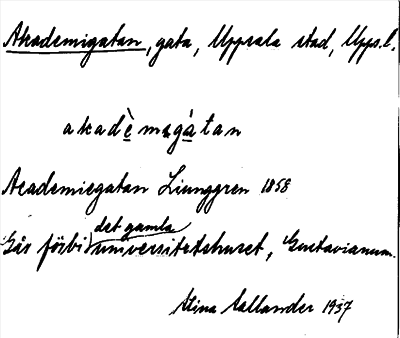 Akademigatan, gata, Uppsala stad, Upps. l.
akadè mıgàtan
Academiegatan Ljunggren 1858
det gamla
Går förbi universitetshuset, Gustavianum.
Stina Callander 1937